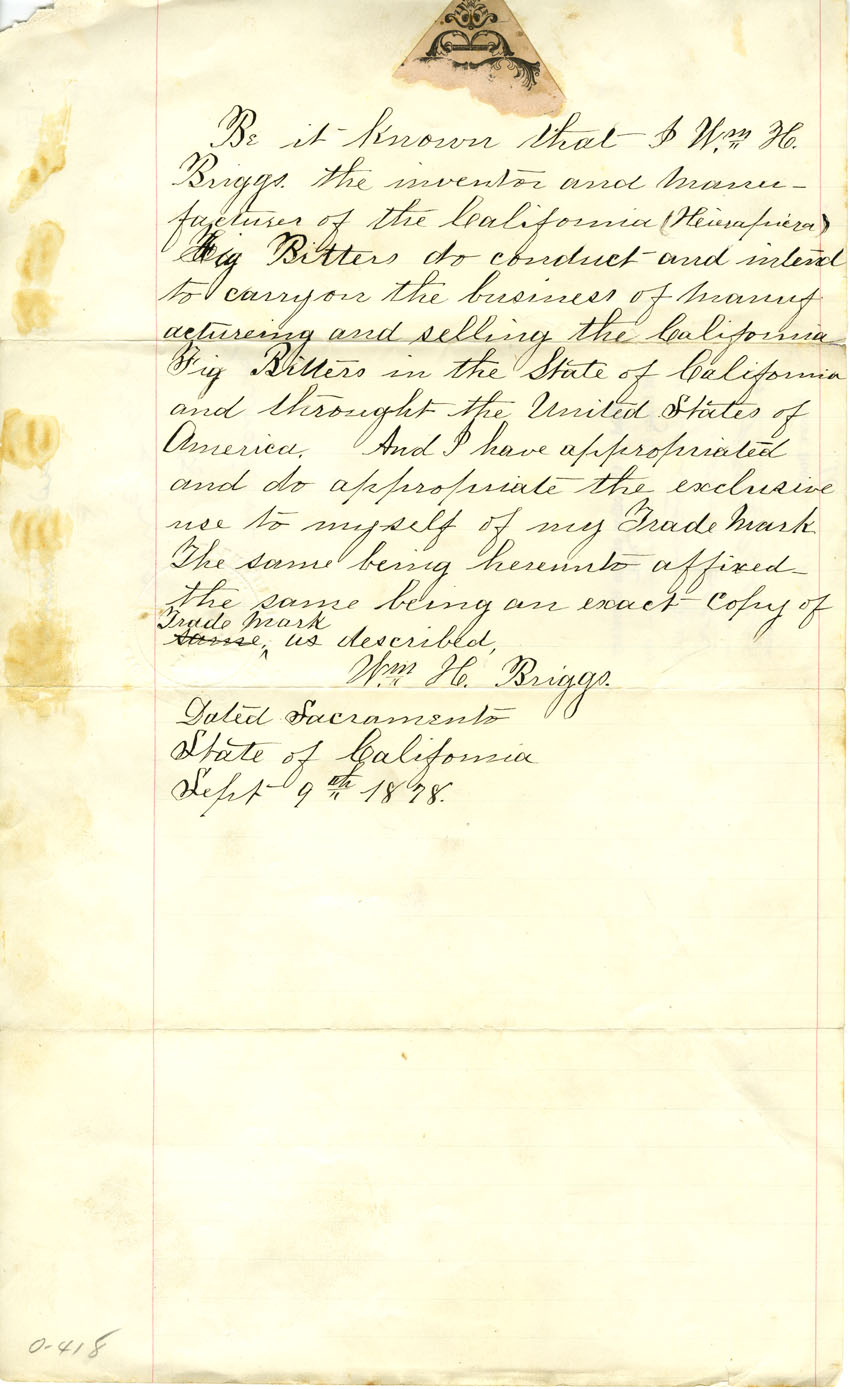 Be it known that I Wm H.
Briggs. the inventor and manu-
facturer of the California (Heirapicra)
Fig Bitters do conduct and intend
to carryon the business of manuf
actureing and selling the California
Fig Bitters in the State of California
and throught the United States of
America. And I have appropriated
and do appropriate the exclusive
use to myself of my Trade Mark
The same being hereunto affixed-
the same being an exact copy of
Trade Mark
same, as described,
Wm H. Briggs.
Dated Sacramento
State of California
Sept 9th 1878.
0-418